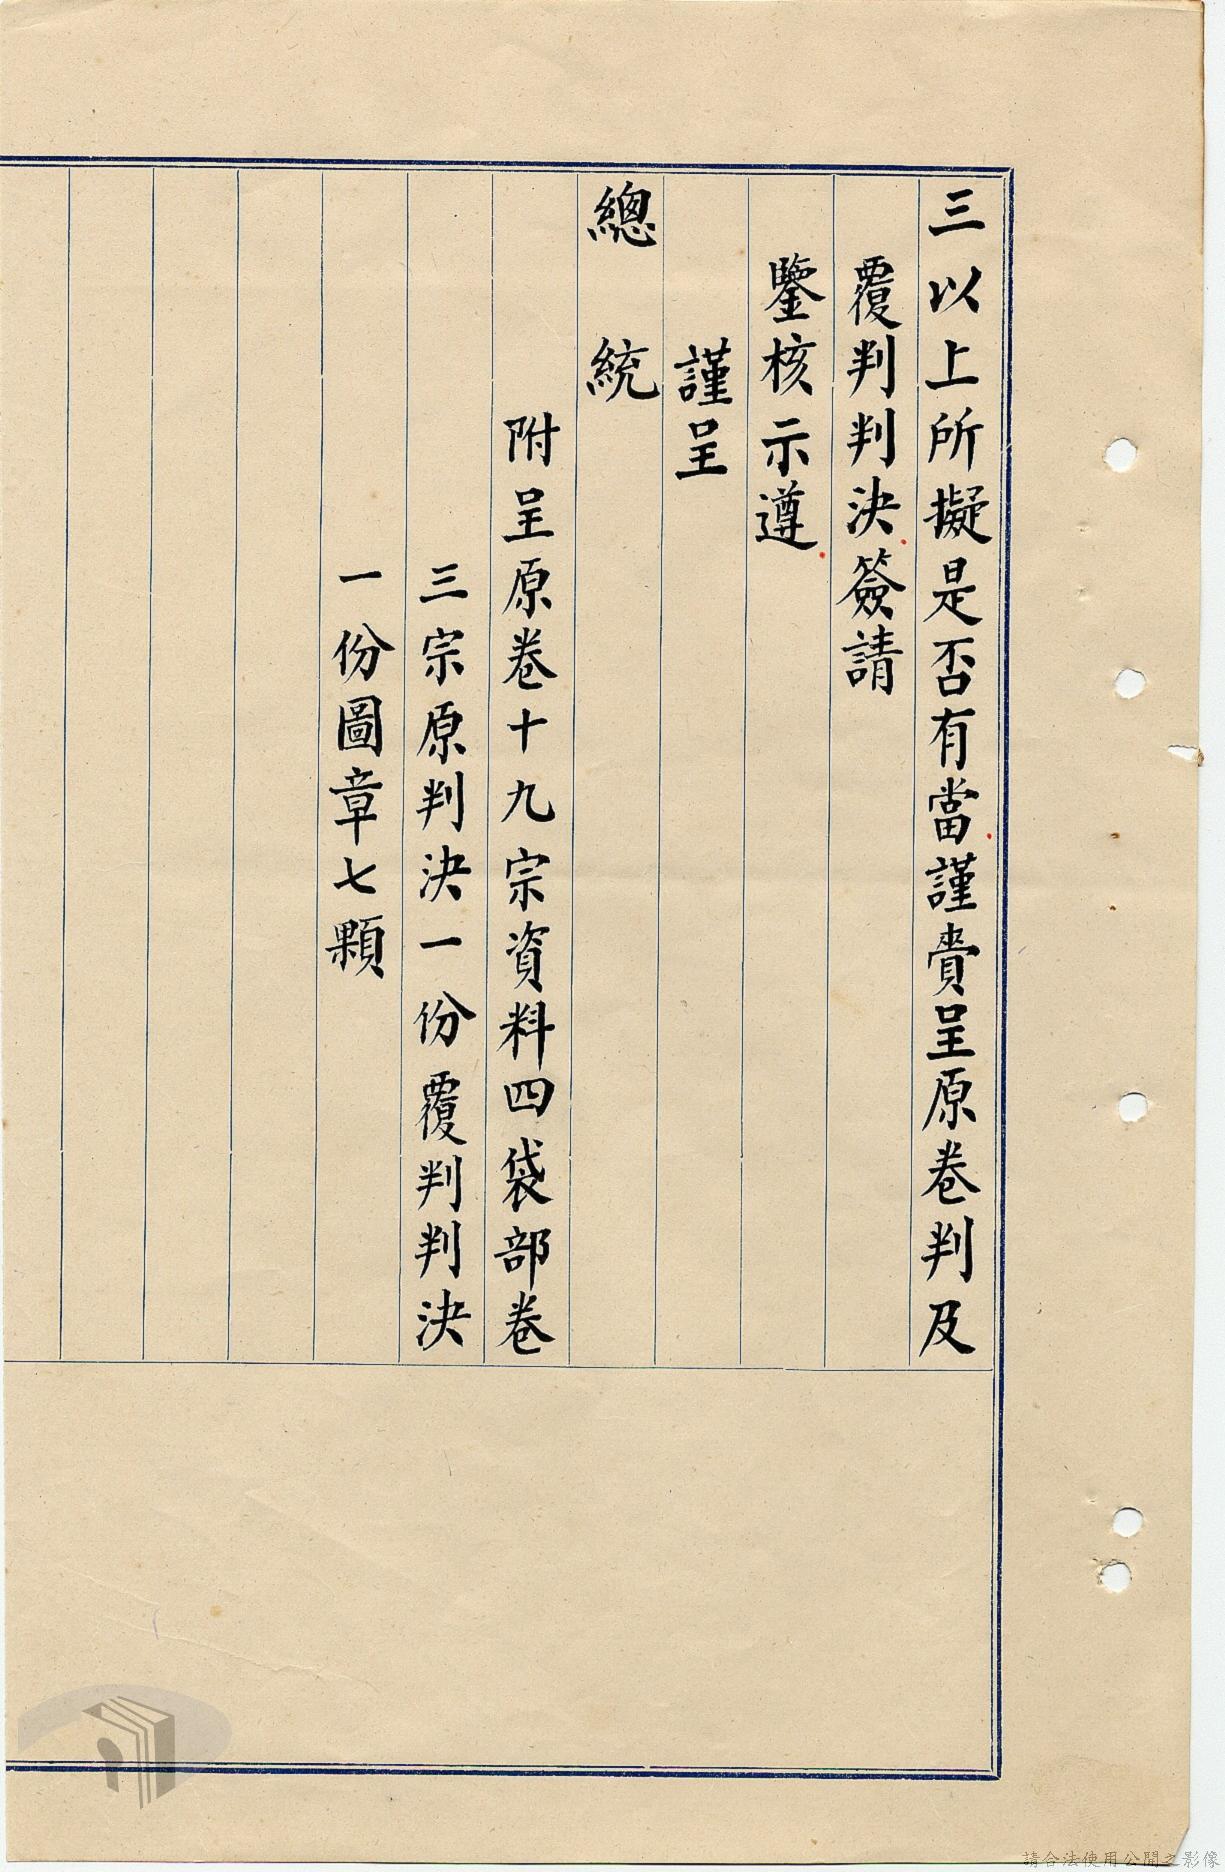 三以上所擬是否有當謹賫呈原卷判及
覆判判決簽請
鑒核示遵
謹呈
總統
附呈原卷十九宗資料四袋部卷
三宗原判決一份覆判判決
一份圖章七顆
請合法使用公開之影像